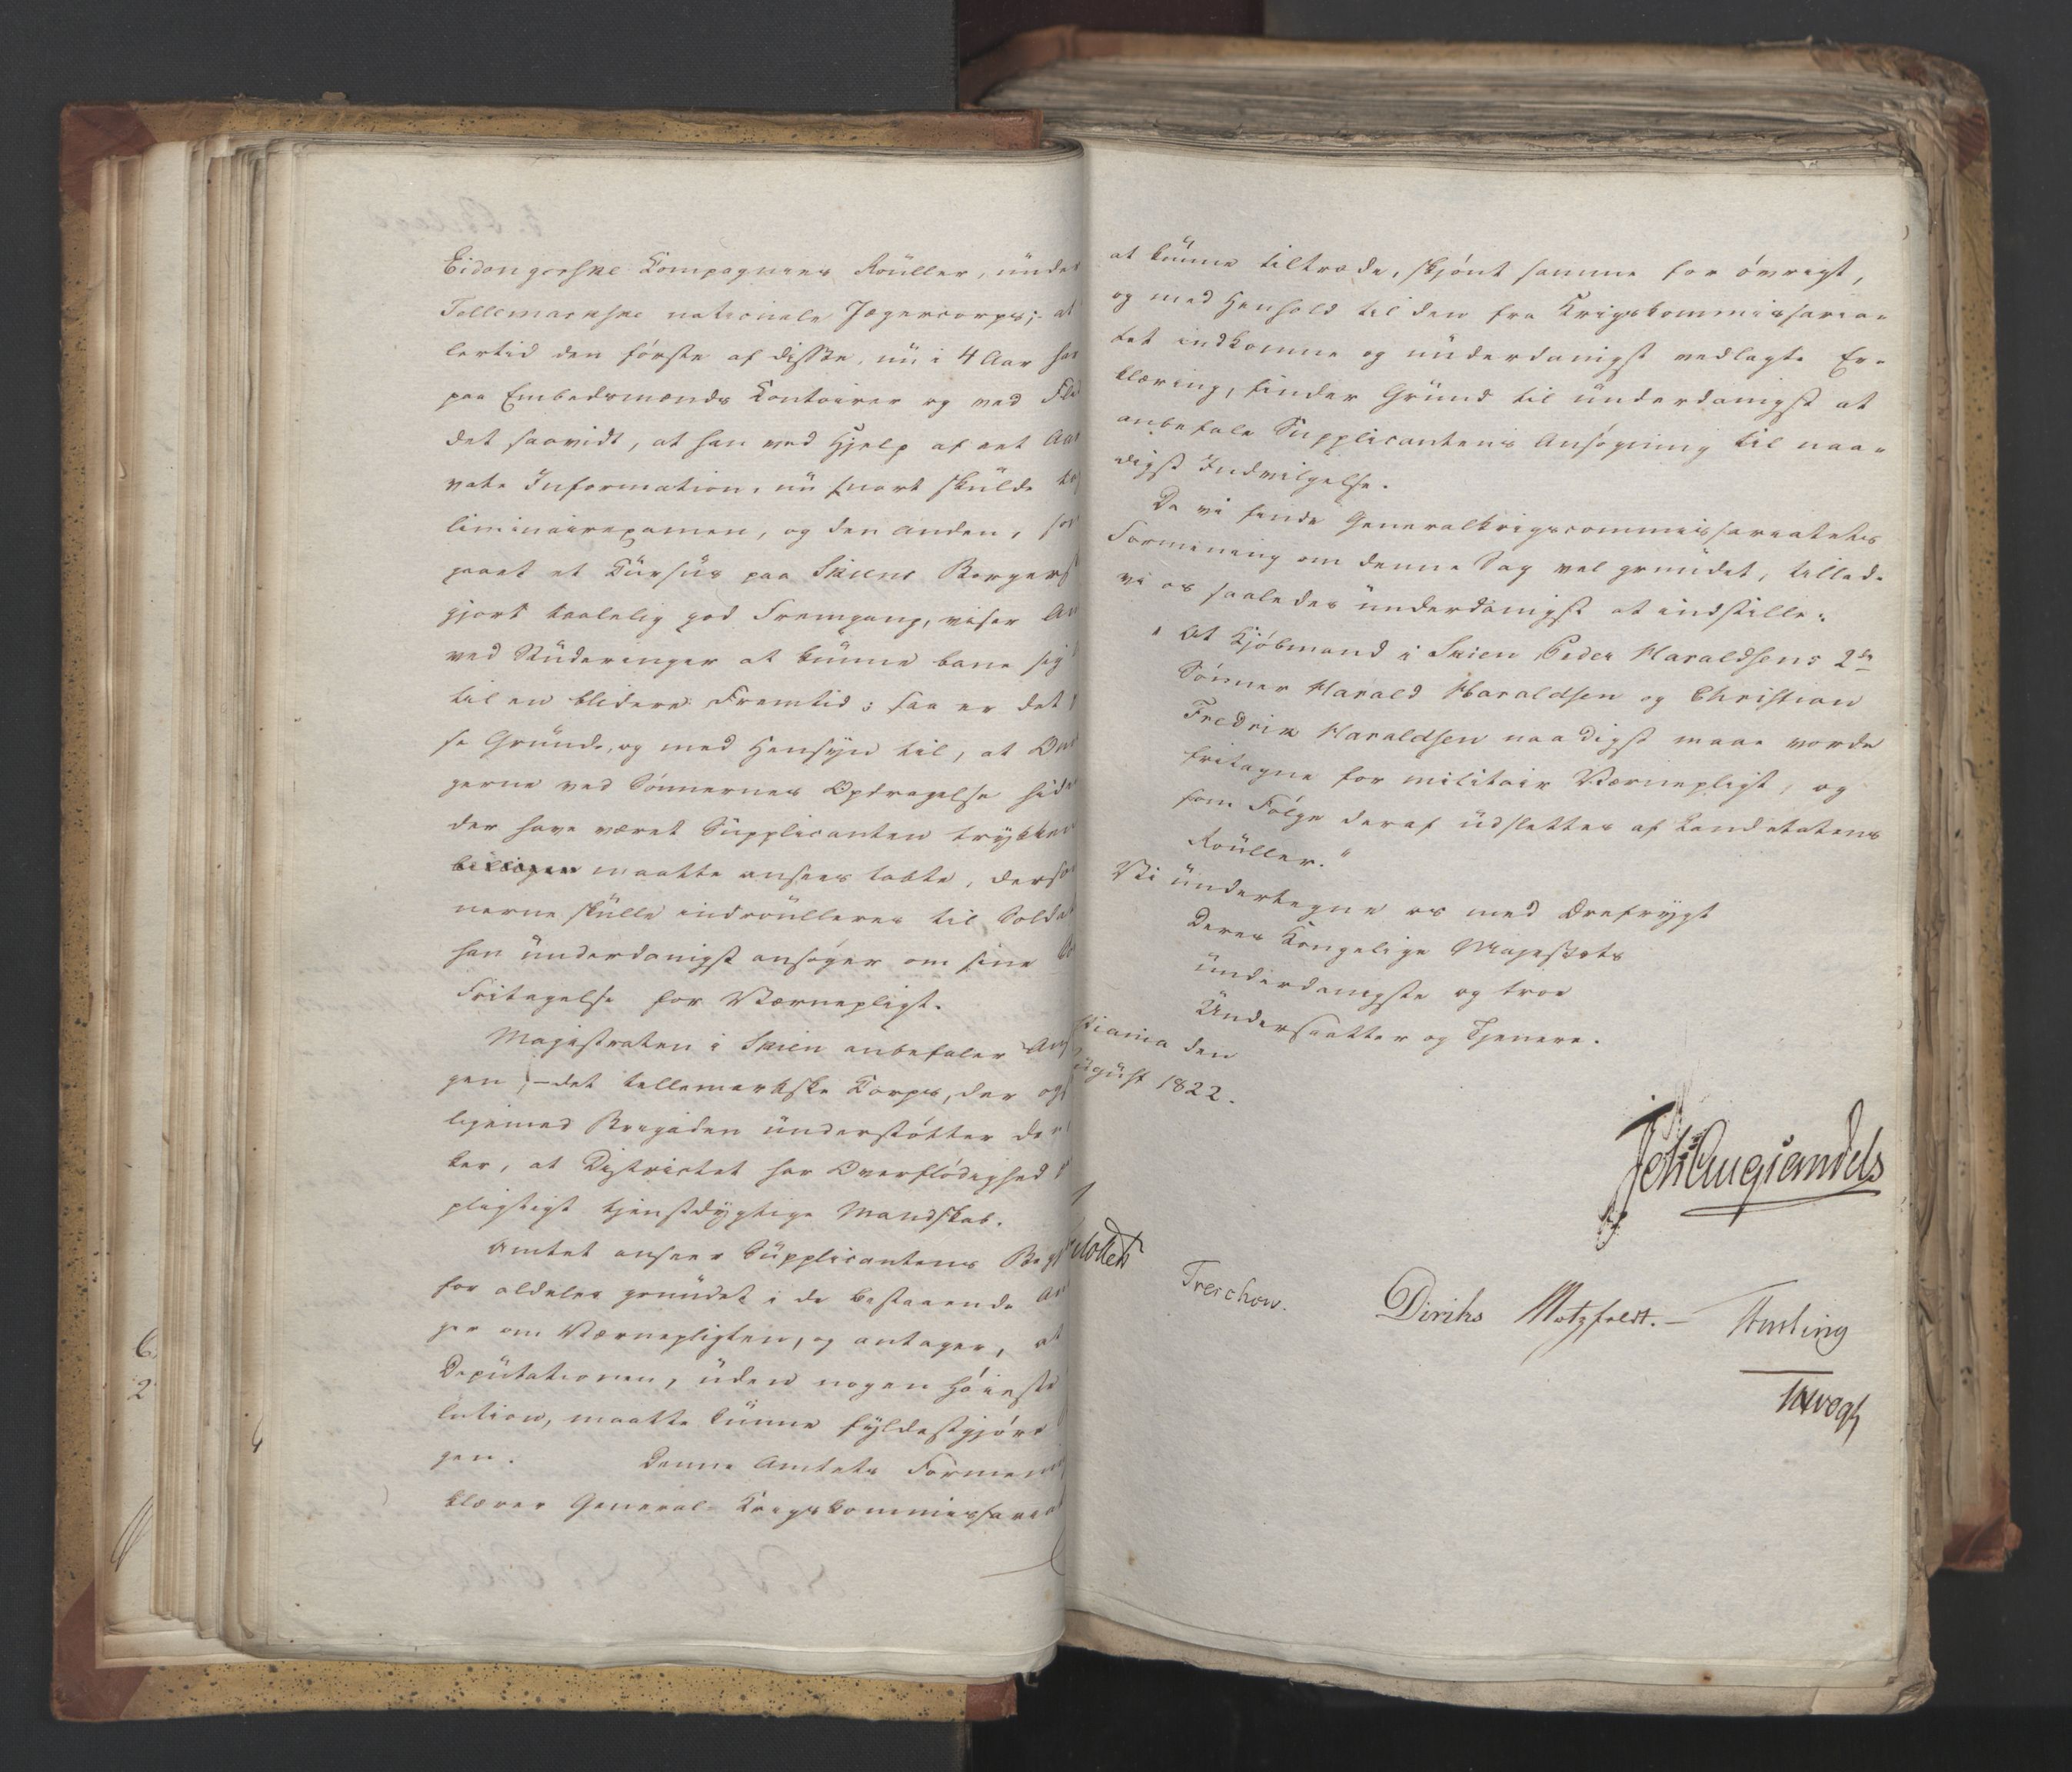 Eidangerske Compagnies Roüller, ünder
Tellemarkske nationale Jægercorps; at
lertid den første af disse, nü i 4 Aar har
paa Embedsmænds Contoirer og ved Fli
det saavidt, at han ved Hjelp af eet Aar
vate Information, nü snart skülde
liminairexamen, og den anden, som
gaaet et Cürsüs paa Skiens Borgers
gjort taalelig god Fremgang, viser An
ved Stüderinger at künne bane sig
til en blidere Fremtid; saa er det
se Gründe, og med Hensyn til, at
gerne ved Sønnernes Opdragelse hid
der have været Supplicanten trykken
maatte ansees tabte, derso
nerne skülle indroülleres til Soldat
han ünderdanigst ansøger om sine
Fritagelse for Værnepligt.
Magistraten i Skien anbefaler Ans
gen, - det tellemarkske Corps, der og
ligemed Brigaden ünderstøtter den
ker, at Districtet har Overflødighed
pligtigt tjenstdygtige Mandskab.
Amtet anseer Süpplicantens Beg
for aldeles gründet i de bestaaende An
ger om Værnepligten, og antager, at
Depütationen, üden nogen høieste
lution, maatte künne fyldestgjøre
gen. Denne Amtets Formen
klærer General-Krigskommissaria
at künne tiltræde, skjønt samme for øvrigt,
og med Henhold til den fra Krigskommissaria-
tet indkomne og ünderdanigst vedlagte Er-
klæring, finder Gründ til ünderdanigst at
anbefale Supplicantens Ansøgning til naa-
digst Indvilgelse.
Da vi finde Generalkrigscommissariatets
Formening om denne Sag vel gründet, tillade
vi os saaledes ünderdanigst at indstille:
" At Kjøbmand i Skien Peder Haraldsens 2de
Sønner Harald Haraldsen og Christian
Fredrik Haraldsen naadigst maae vorde
fritagne for militair Værnepligt, og
som Følge deraf üdslettes af Landetatens
Roüller."
Vi ündertegne os med Ærefrygt
Deres Kongelige Majestæts
ünderdanigste og troe
Undersaatter og Tjenere.
stiania den
ügüst 1822.
Joh Aug Sandels
Mollett
Treschow.
Diriks Motzfeldt. - Hæsling
Howegh